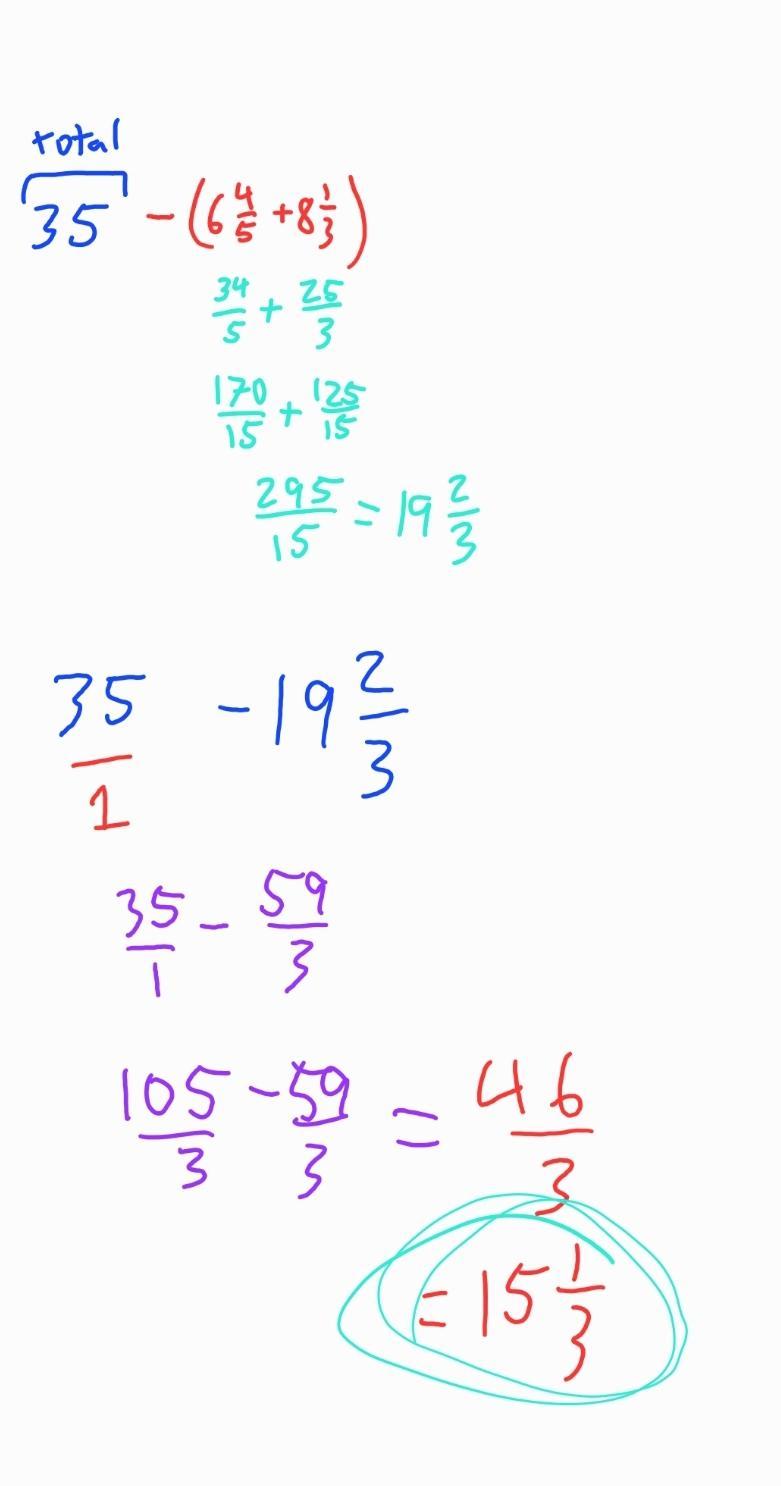 total
35 - (6 4/5 + 8 1/3)
34/5 + 25/3
170/15 + 125/15
295/15 = 19 2/3
35/1 - 19 2/3
35/1 - 59/3
105/3 - 59/3 = 46/3
= 15 1/3